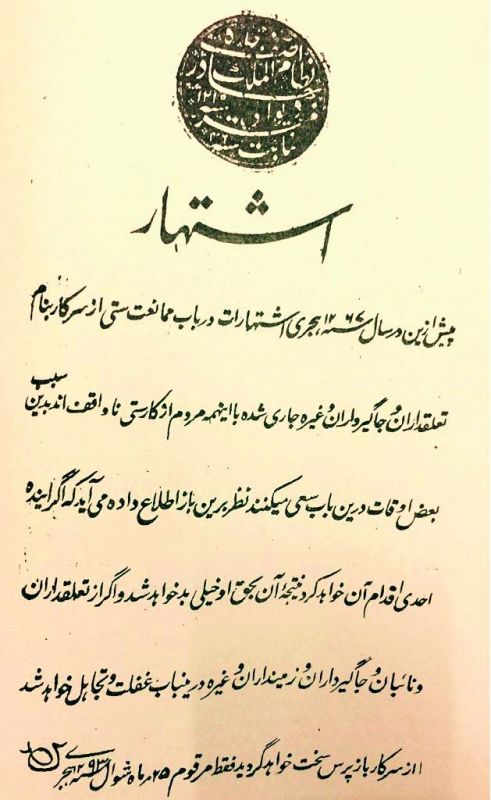 آصف جاه
نظام الملک
بهادر
اشتهار
پیش ازین در سال ۱۲۶۷ سنه هجری اشتهارات در باب ممانعت ستی از سرکار بنام
تعلقداران و جاگیرداران وغیره جاری شده با اینهمه مردم از کار ستی نا واقف اند بدین سبب
بعض اوقات درین باب سعی میکنند نظر برین باز اطلاع داده می آید که اگر آینده
احدی اقدام آن خواهد کرد نتیجهٔ آن بحق او خیلی بد خواهد شد و اگر از تعلقداران
و نائبان و جاگیرداران و زمینداران وغیره درینباب غفلت و تجاهل خواهد شد
از سرکار باز پرس سخت خواهد گردید فقط مرقوم ۲۵ ماه شوال سنه ۱۲۹۳ هجری